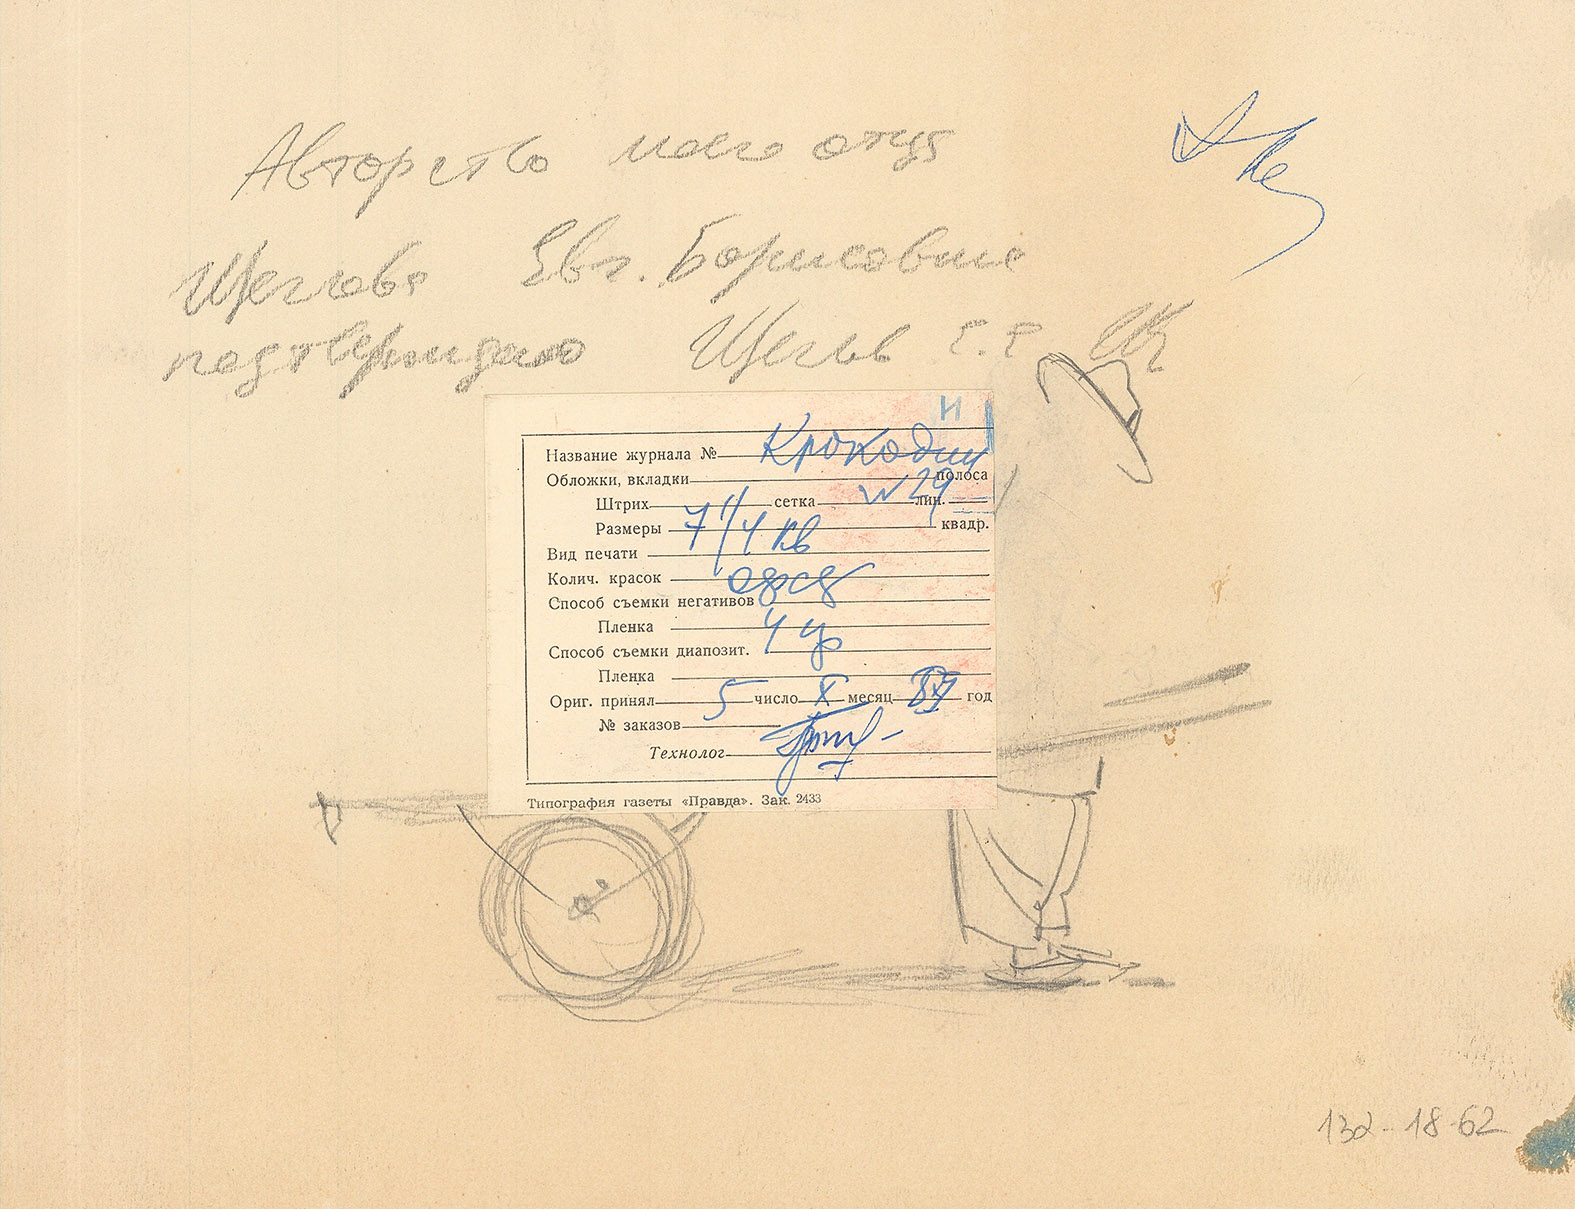 Авторство моего отца
Щегловa Евг. Борисовиче
подтверждаю Щегл
Н
Название журнала № Крокодил
Обложки, вкладки полоса
Штрих сетка N 29 лин.
Размеры 7 1/4 кв квадр.
Вид печати
Колич. красок
Способ съемки негативов
Пленка 4
Способ съемки диапозит.
Пленка
Ориг. принял 5 число X месяц год
№ заказов
Технолог
Типография газеты «Правда». Зак. 2433
132-18-62